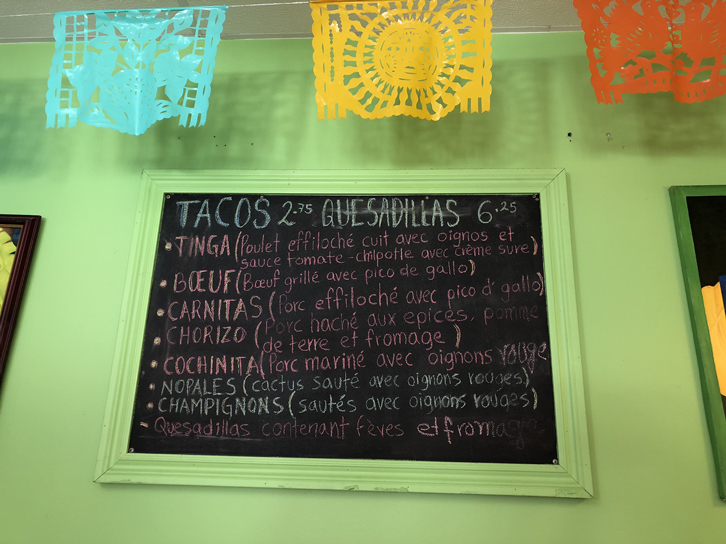 TACOS 2.75 QUESADILLAS 6.25
• TINGA (Poulet effiloché cuit avec oignos et
sauce tomate-chilpotle avec crème sure)
• BŒUF (Bœuf grillé avec pico de gallo)
• CARNITAS (Porc effiloché avec pico d' gallo)
• CHORIZO (Porc haché aux epices, pomme
de terre et fromage)
• COCHINITA (Porc mariné avec oignons rouge
• NOPALES (cactus sauté avec oignons rouges)
• CHAMPIGNONS (sautés avec oignons rouges)
- Quesadillas contenant fèves et fromage